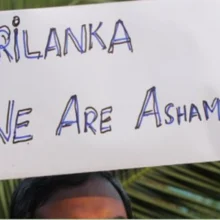 RiLANKA
WE ARE ASHAM